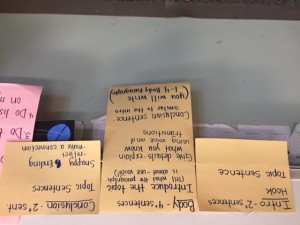 Intro - 2+ sentences
Hook
Topic Sentence
Body - 4+ sentences
Introduce the topic
(tell what the paragraph
is about - use voice!)
Give details/explain
what you know
using voice and
transitions
Conclusion sentence:
similar to the intro
(you will write
1-4 Body Paragraphs)
Conclusion - 2+ sent
Topic Sentences
Snappy Ending
reflect
make a connection
3. Do
4. Do
on